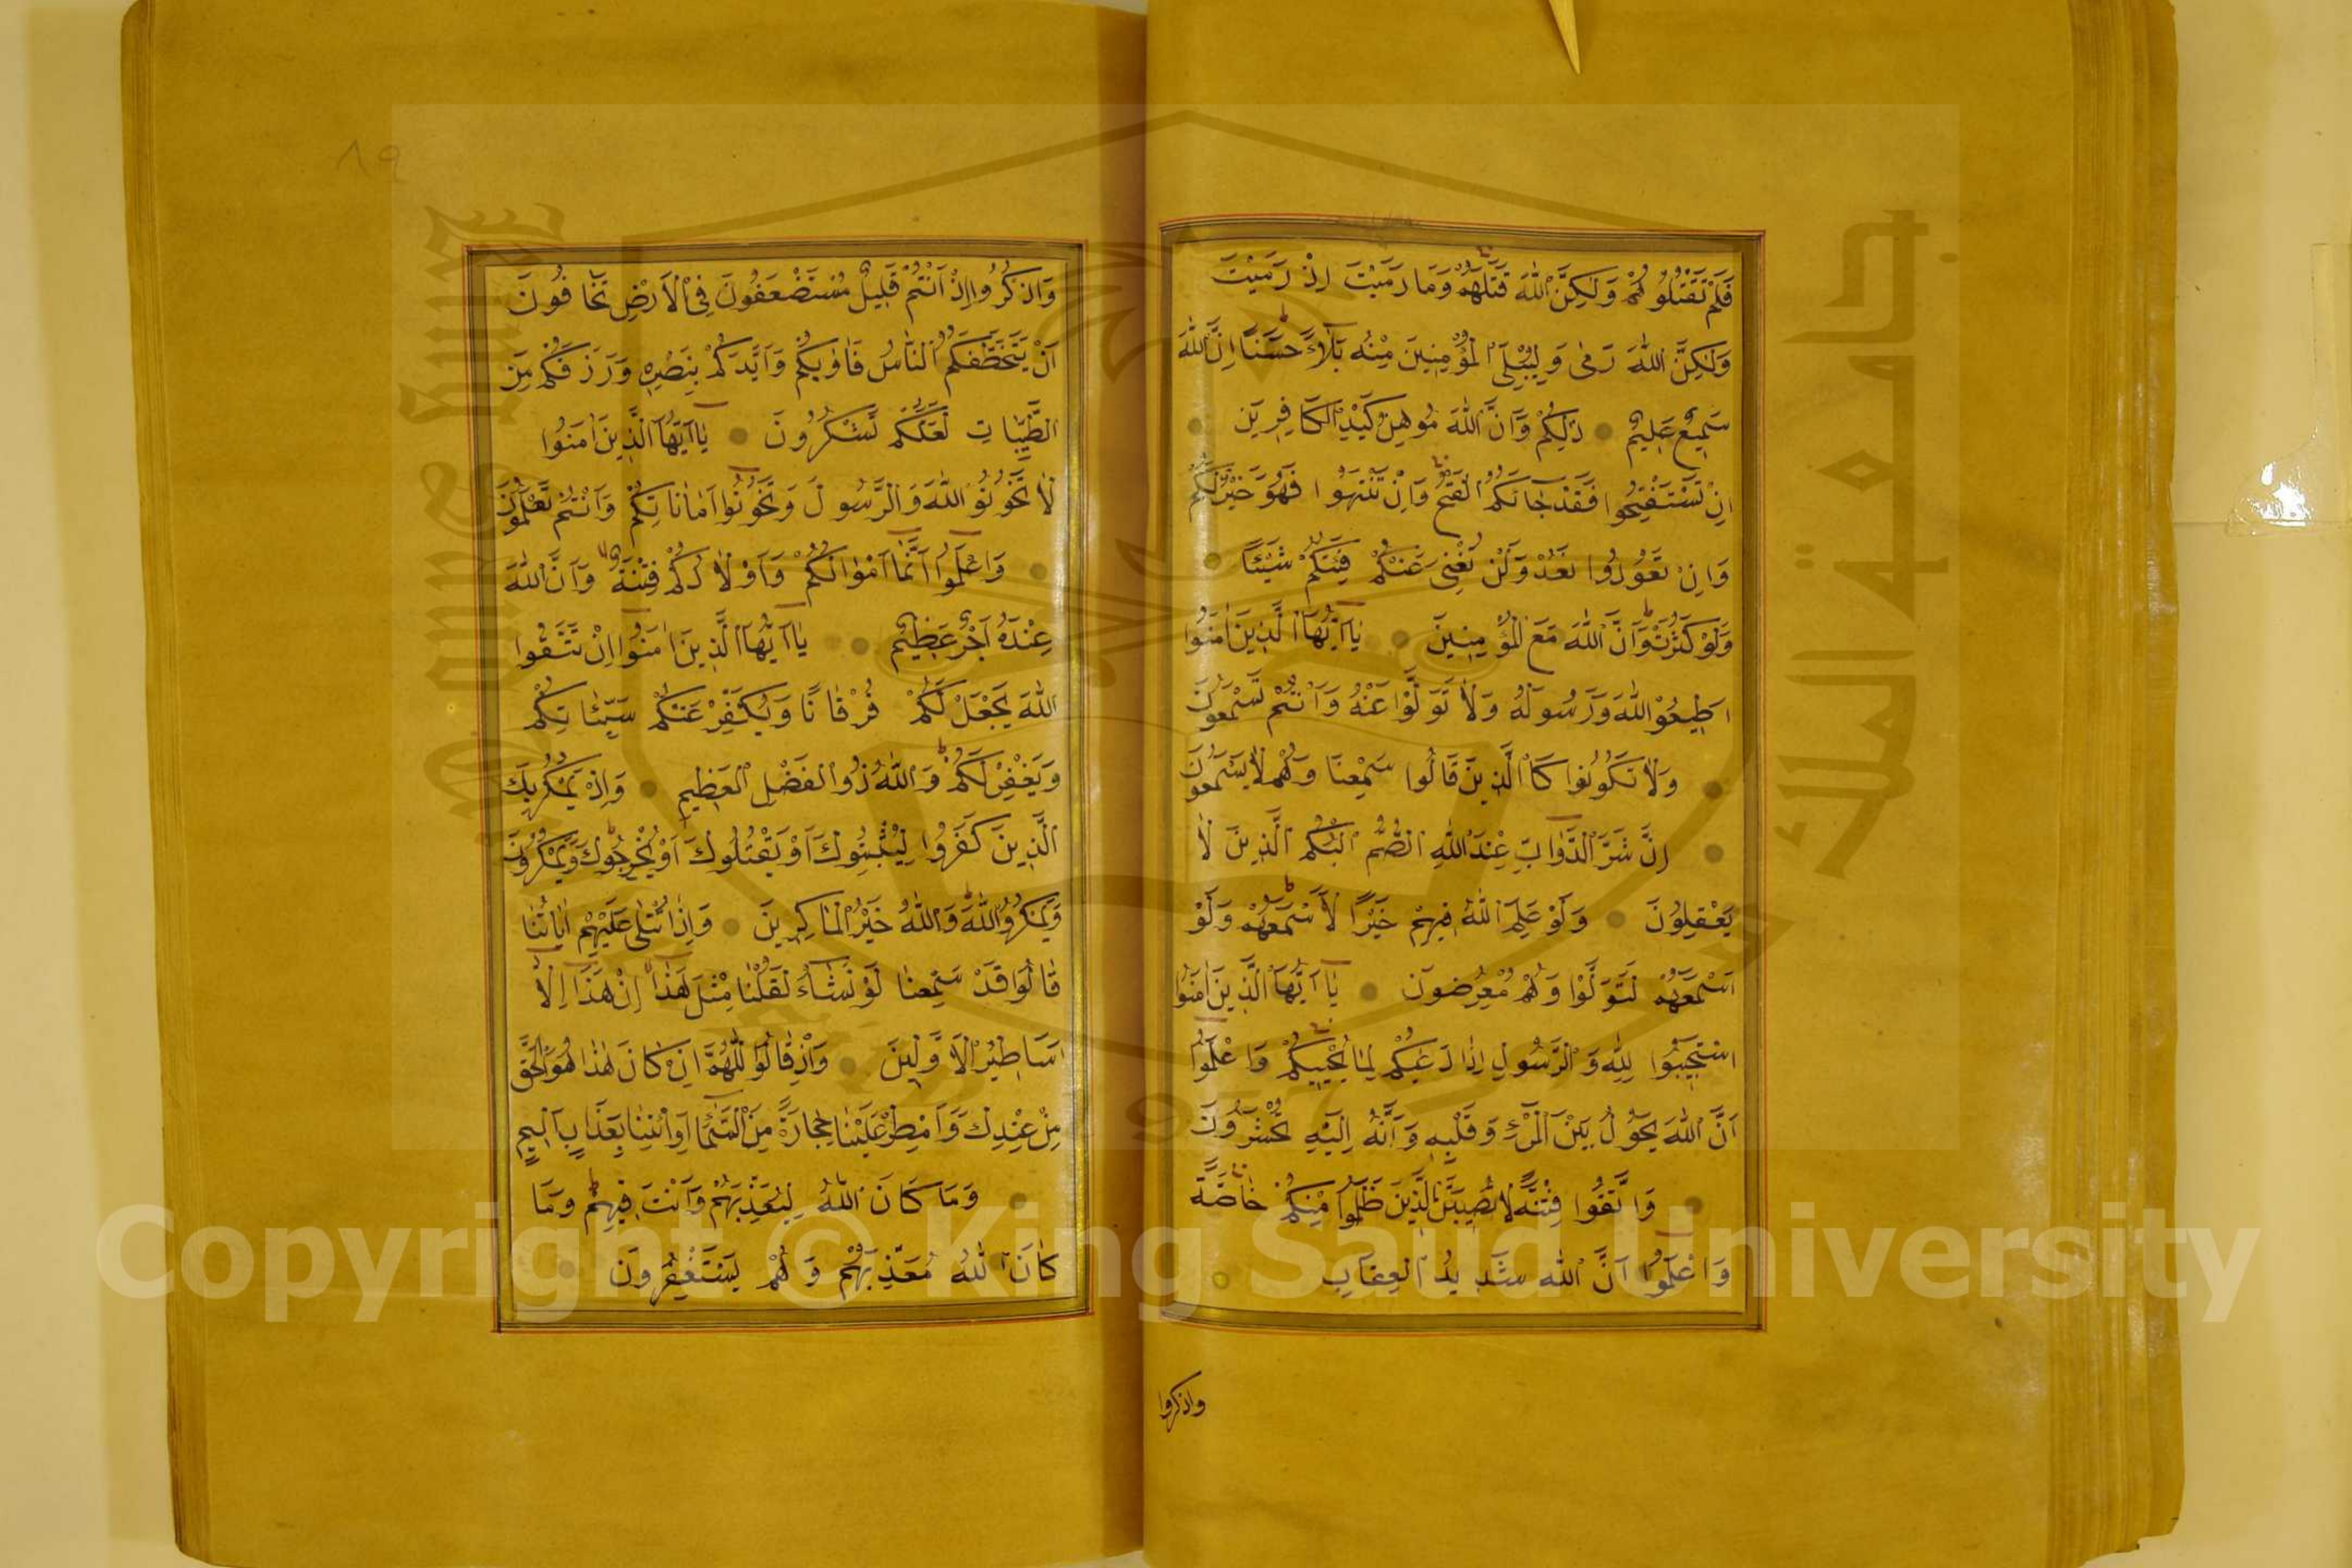 فَلَمْ تَقْتُلُوهُمْ وَلٰكِنَّ اللّٰهَ قَتَلَهُمْ وَمَا رَمَيْتَ اِذْ رَمَيْتَ
وَلٰكِنَّ اللّٰهَ رَمٰى وَلِيُبْلِيَ الْمُؤْمِنِينَ مِنْهُ بَلَاۤءً حَسَنًا اِنَّ اللّٰهَ
سَمِيعٌ عَلِيمٌ ذٰلِكُمْ وَاَنَّ اللّٰهَ مُوهِنُ كَيْدِ الْكَافِرِينَ
اِنْ تَسْتَفْتِحُوا فَقَدْ جَاۤءَكُمُ الْفَتْحُ وَاِنْ تَنْتَهُوا فَهُوَ خَيْرٌ لَكُمْ
وَاِنْ تَعُودُوا نَعُدْ وَلَنْ تُغْنِيَ عَنْكُمْ فِئَتُكُمْ شَيْئًا
وَلَوْ كَثُرَتْ وَاَنَّ اللّٰهَ مَعَ الْمُؤْمِنِينَ يَاۤ اَيُّهَا الَّذِينَ اٰمَنُوا
اَطِيعُوا اللّٰهَ وَرَسُولَهُ وَلَا تَوَلَّوْا عَنْهُ وَاَنْتُمْ تَسْمَعُونَ
وَلَا تَكُونُوا كَالَّذِينَ قَالُوا سَمِعْنَا وَهُمْ لَا يَسْمَعُونَ
اِنَّ شَرَّ الدَّوَاۤبِّ عِنْدَ اللّٰهِ الصُّمُّ الْبُكْمُ الَّذِينَ لَا
يَعْقِلُونَ وَلَوْ عَلِمَ اللّٰهُ فِيهِمْ خَيْرًا لَاَسْمَعَهُمْ وَلَوْ
اَسْمَعَهُمْ لَتَوَلَّوْا وَهُمْ مُعْرِضُونَ يَاۤ اَيُّهَا الَّذِينَ اٰمَنُوا
اسْتَجِيبُوا لِلّٰهِ وَلِلرَّسُولِ اِذَا دَعَاكُمْ لِمَا يُحْيِيكُمْ وَاعْلَمُوا
اَنَّ اللّٰهَ يَحُولُ بَيْنَ الْمَرْءِ وَقَلْبِهِ وَاَنَّهُ اِلَيْهِ تُحْشَرُونَ
وَاتَّقُوا فِتْنَةً لَا تُصِيبَنَّ الَّذِينَ ظَلَمُوا مِنْكُمْ خَاصَّةً
وَاعْلَمُوا اَنَّ اللّٰهَ شَدِيدُ الْعِقَابِ
واذكروا
٨٩
وَاذْكُرُوا اِذْ اَنْتُمْ قَلِيلٌ مُسْتَضْعَفُونَ فِي الْاَرْضِ تَخَافُونَ
اَنْ يَتَخَطَّفَكُمُ النَّاسُ فَاٰوٰيكُمْ وَاَيَّدَكُمْ بِنَصْرِهِ وَرَزَقَكُمْ مِنَ
الطَّيِّبَاتِ لَعَلَّكُمْ تَشْكُرُونَ يَاۤ اَيُّهَا الَّذِينَ اٰمَنُوا
لَا تَخُونُوا اللّٰهَ وَالرَّسُولَ وَتَخُونُوا اَمَانَاتِكُمْ وَاَنْتُمْ تَعْلَمُونَ
وَاعْلَمُوا اَنَّمَا اَمْوَالُكُمْ وَاَوْلَادُكُمْ فِتْنَةٌ وَاَنَّ اللّٰهَ
عِنْدَهُ اَجْرٌ عَظِيمٌ يَاۤ اَيُّهَا الَّذِينَ اٰمَنُوا اِنْ تَتَّقُوا
اللّٰهَ يَجْعَلْ لَكُمْ فُرْقَانًا وَيُكَفِّرْ عَنْكُمْ سَيِّئَاتِكُمْ
وَيَغْفِرْ لَكُمْ وَاللّٰهُ ذُو الْفَضْلِ الْعَظِيمِ وَاِذْ يَمْكُرُ بِكَ
الَّذِينَ كَفَرُوا لِيُثْبِتُوكَ اَوْ يَقْتُلُوكَ اَوْ يُخْرِجُوكَ وَيَمْكُرُونَ
وَيَمْكُرُ اللّٰهُ وَاللّٰهُ خَيْرُ الْمَاكِرِينَ وَاِذَا تُتْلٰى عَلَيْهِمْ اٰيَاتُنَا
قَالُوا قَدْ سَمِعْنَا لَوْ نَشَاۤءُ لَقُلْنَا مِثْلَ هٰذَا اِنْ هٰذَا اِلَّا
اَسَاطِيرُ الْاَوَّلِينَ وَاِذْ قَالُوا اللّٰهُمَّ اِنْ كَانَ هٰذَا هُوَ الْحَقَّ
مِنْ عِنْدِكَ فَاَمْطِرْ عَلَيْنَا حِجَارَةً مِنَ السَّمَاۤءِ اَوِ ائْتِنَا بِعَذَابٍ اَلِيمٍ
وَمَا كَانَ اللّٰهُ لِيُعَذِّبَهُمْ وَاَنْتَ فِيهِمْ وَمَا
كَانَ اللّٰهُ مُعَذِّبَهُمْ وَهُمْ يَسْتَغْفِرُونَ
جامعة الملك سعود
Copyright © King Saud University